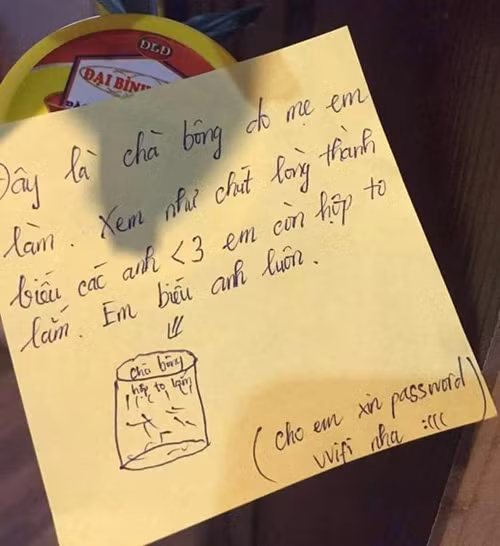 DLD
ĐẠI BÌNH
Đây là chà bông do mẹ em
làm. Xem như chút lòng thành
biếu các anh <3 em còn hộp to
lắm. Em biếu anh luôn.
chà bông
hộp to lắm
(cho em xin password
wifi nha :(((
)